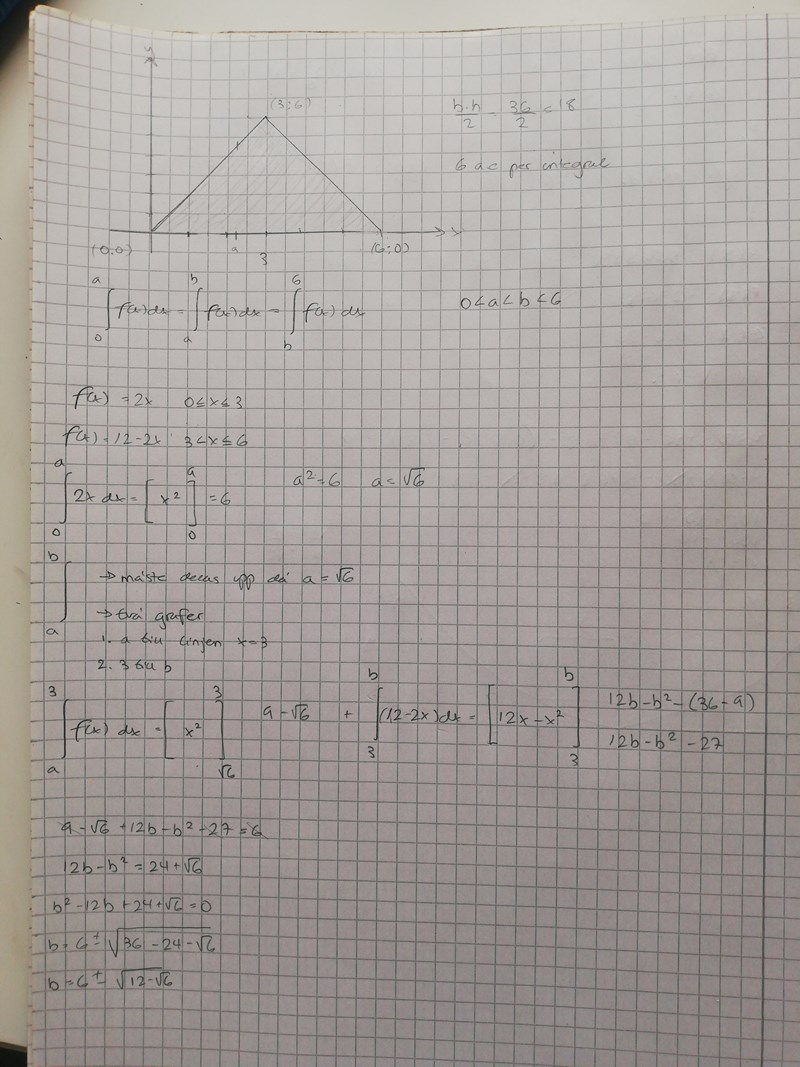 y
(3;6)
b·h/2 = 36/2 = 18
6 ae per integral
x
(0;0)
a
3
(6;0)
∫₀ᵃ f(x)dx = ∫ₐᵇ f(x)dx = ∫_b⁶ f(x)dx 0<a<b<6
f(x) = 2x 0≤x≤3
f(x) = 12-2x 3<x≤6
∫₀ᵃ 2x dx = [x²]₀ᵃ = 6 a²=6 a=√6
∫ₐᵇ → måste delas upp då a = √6
→ två grafer
1. a till linjen x=3
2. 3 till b
∫ₐ³ f(x) dx = [x²]_√6³ 9-√6 + ∫₃ᵇ (12-2x)dx = [12x-x²]₃ᵇ 12b-b²-(36-9)
12b-b²-27
9-√6+12b-b²-27=6
12b-b²=24+√6
b²-12b+24+√6=0
b=6±√(36-24-√6)
b=6±√(12-√6)